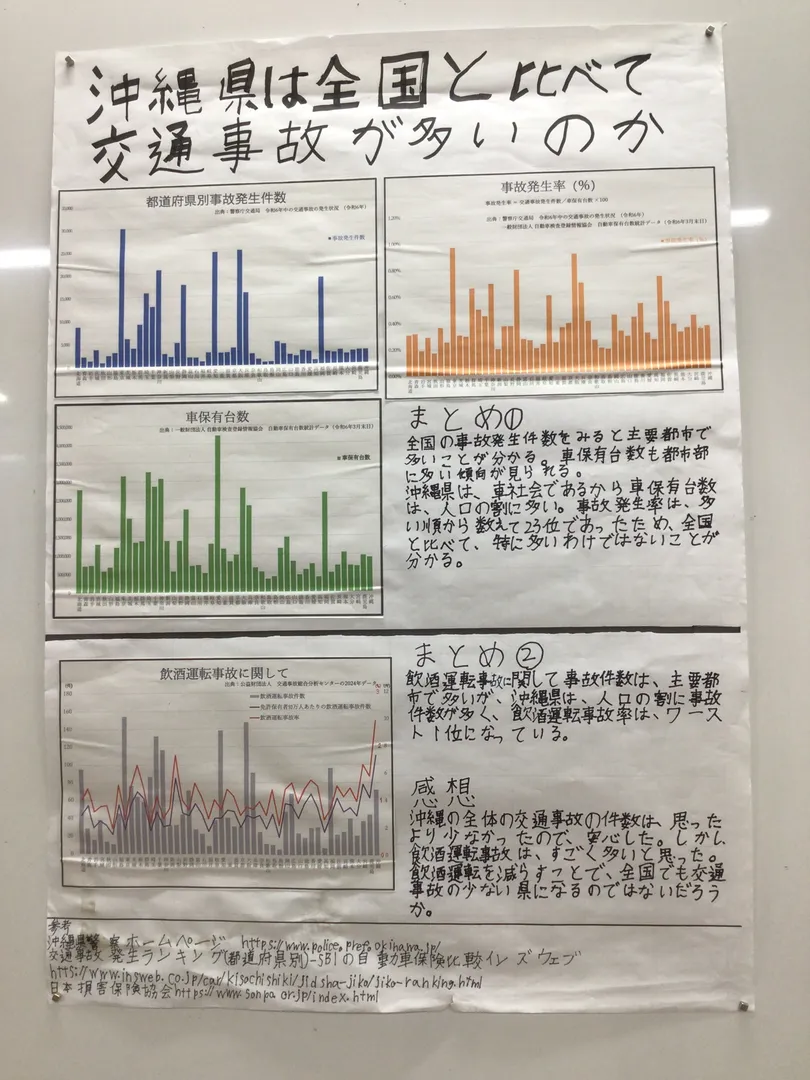 沖縄県は全国と比べて
交通事故が多いのか
都道府県別事故発生件数
出典:警察庁交通局 令和6年中の交通事故の発生状況 (令和6年)
■事故発生件数
事故発生率(%)
事故発生率 = 交通事故発生件数/車保有台数×100
出典:警察庁交通局 令和6年中の交通事故の発生状況 (令和6年)
一般財団法人 自動車検査登録情報協会 自動車保有台数統計データ(令和6年3月末日)
車保有台数
出典:一般財団法人 自動車検査登録情報協会 自動車保有台数統計データ (令和6年3月末日)
■車保有台数
まとめ①
全国の事故発生件数をみると主要都市で
多いことが分かる。車保有台数も都市部
に多い傾向が見られる。
沖縄県は、車社会であるから車保有台数
は、人口の割に多い。事故発生率は、多
い順から数えて23位であったため、全国
と比べて、特に多いわけではないことが
分かる。
飲酒運転事故に関して
出典:公益財団法人 交通事故総合分析センターの2024年データ
飲酒運転事故件数
免許保有者10万人あたりの飲酒運転事故件数
飲酒運転事故率
まとめ②
飲酒運転事故に関して事故件数は、主要都
市で多いが、沖縄県は、人口の割に事故
件数が多く、飲酒運転事故率は、ワース
ト1位になっている。
感想
沖縄の全体の交通事故の件数は、思った
より少なかったので、安心した。しかし、
飲酒運転事故は、すごく多いと思った。
飲酒運転を減らすことで、全国でも交通
事故の少ない県になるのではないだろう
か。
参考
沖縄県警察ホームページ https://www.police.pref.okinawa.jp/
交通事故発生ランキング(都道府県別)-SBIの自動車保険比較インズウェブ
https://www.insweb.co.jp/car/kisochishiki/jidsha-jiko/jiko-ranking.html
日本損害保険協会https://www.sonpo.or.jp/index.html